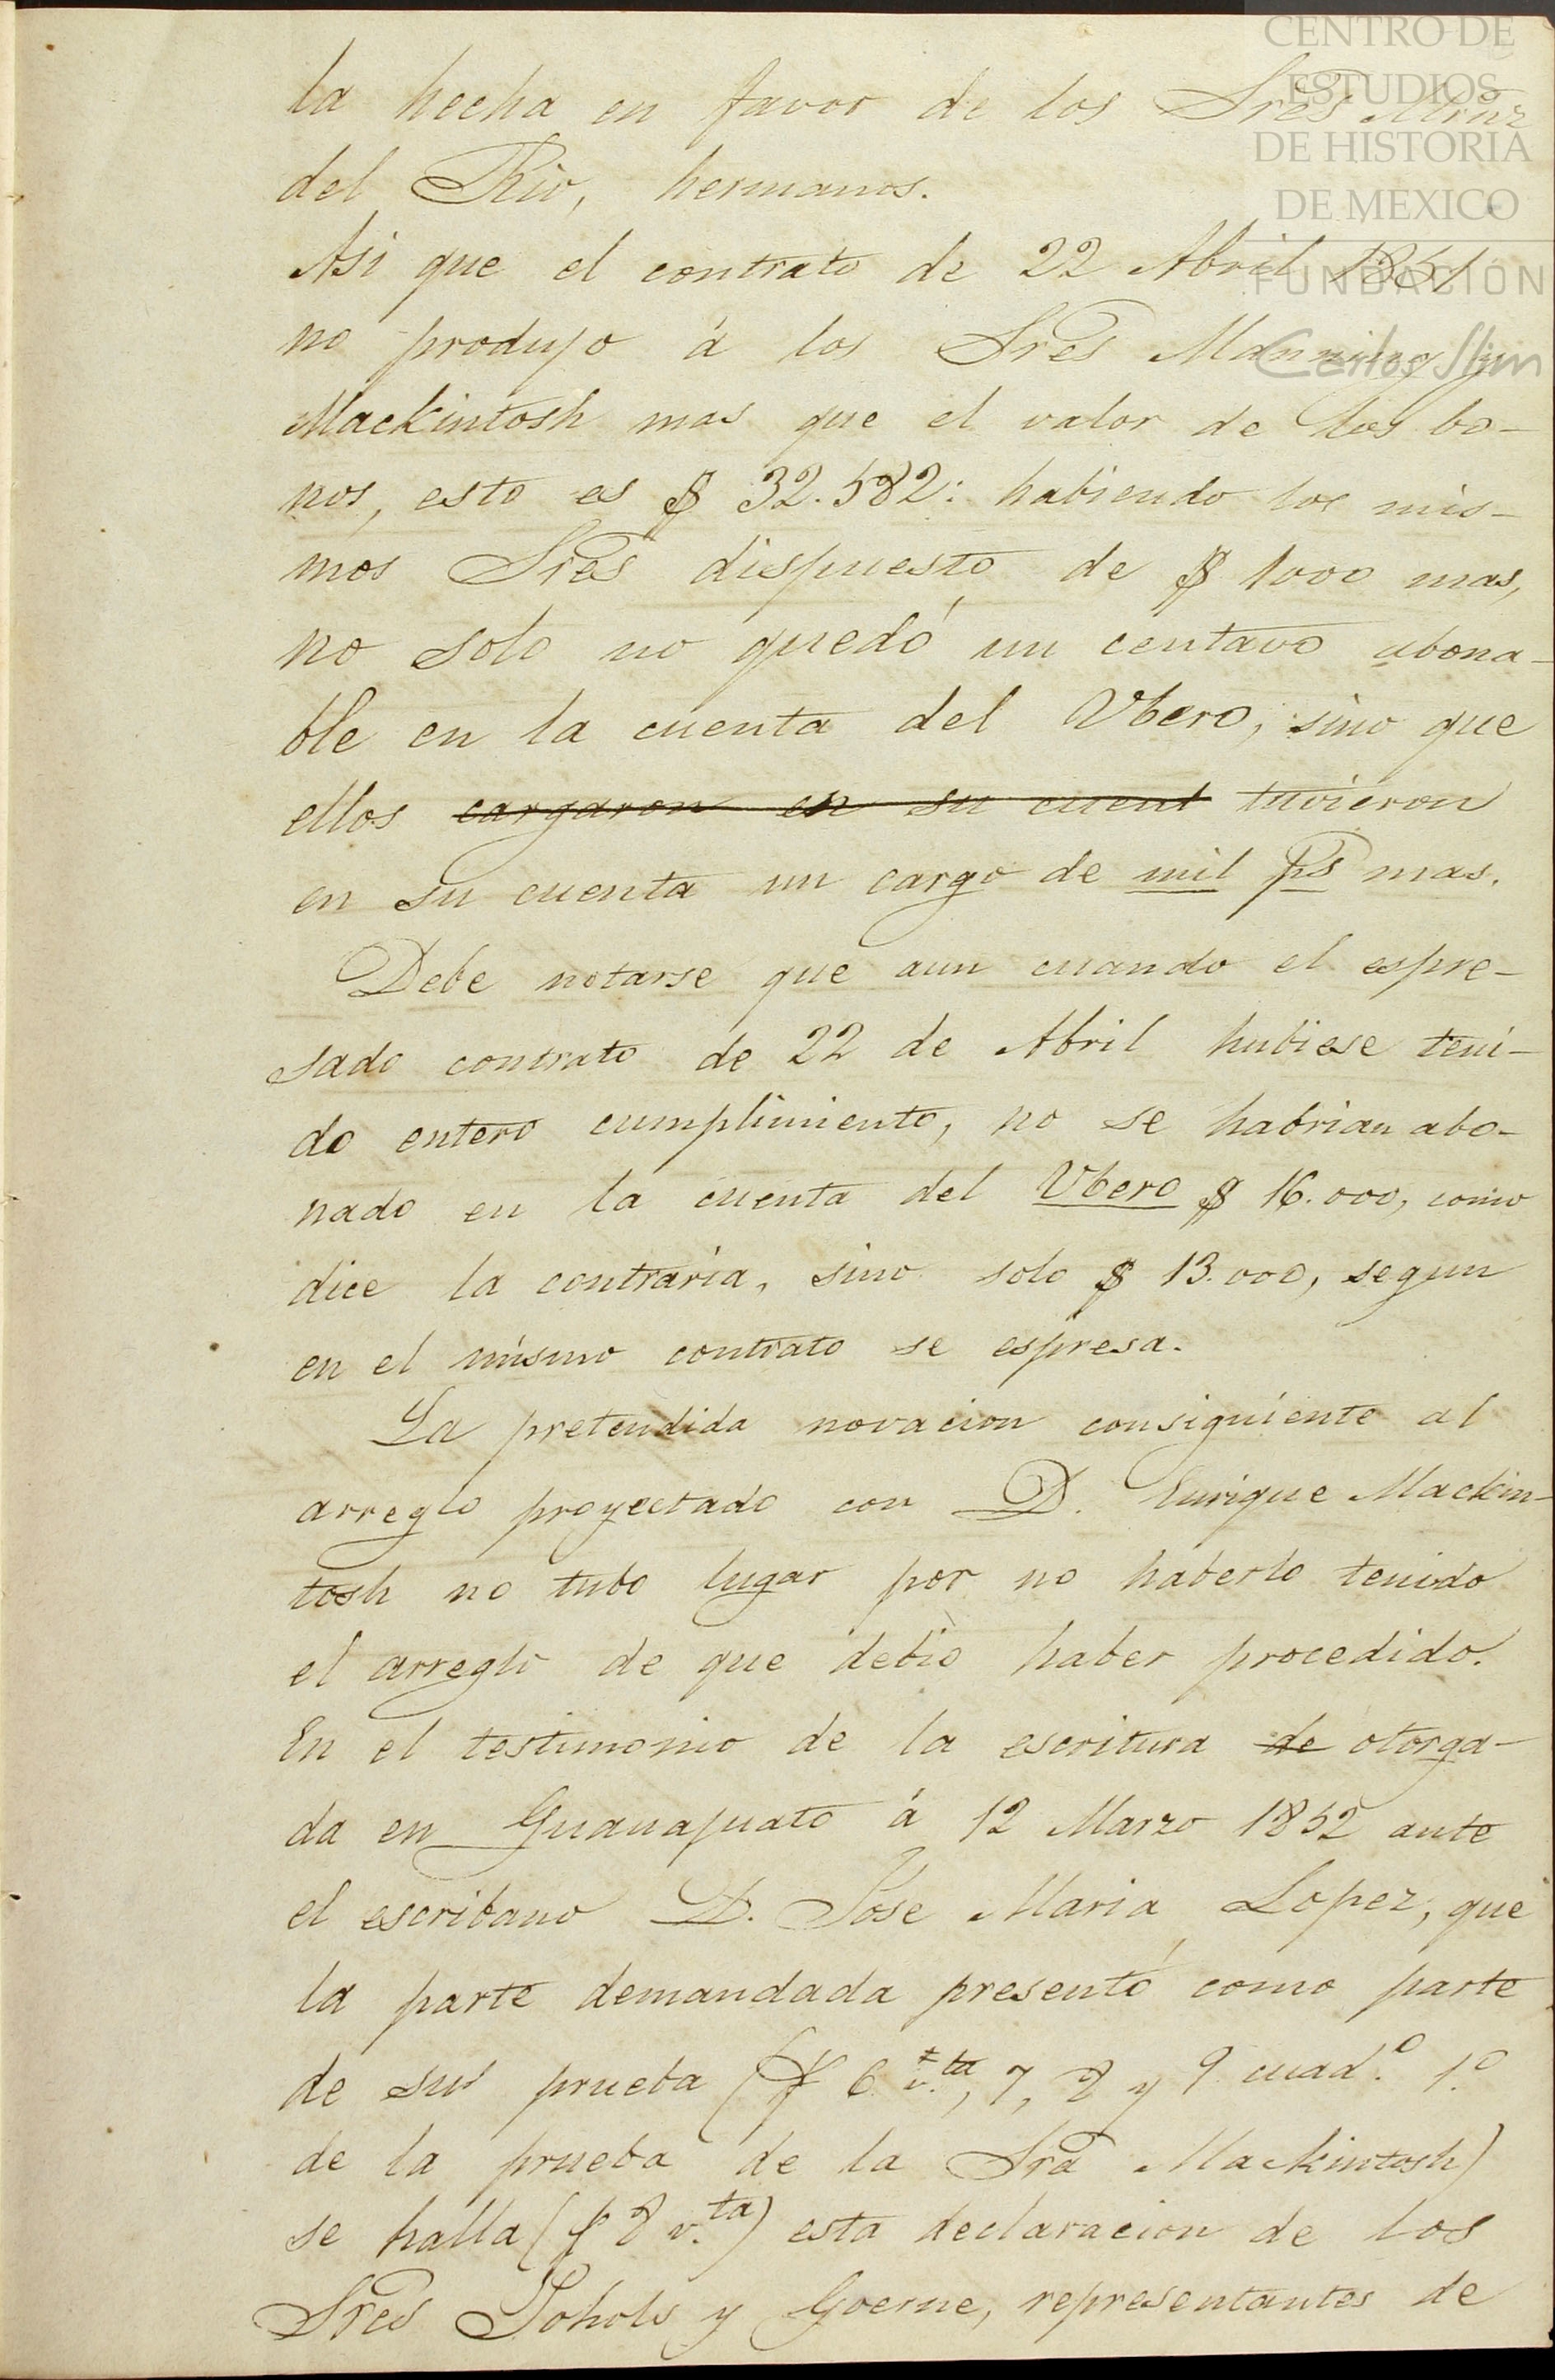 la hecha en favor de los Sres
del Rio, hermanos.
Asi que el contrato de 22 Abril 1851
no produjo á los Sres Manning y
Mackintosh mas que el valor de los bo-
nos, esto es $ 32.582: habiendo los mis-
mos Sres dispuesto de $ 1000 mas,
no solo no quedó un centavo abona-
ble en la cuenta del Vbero, sino que
ellos cargaron en su cuent tuvieron
en su cuenta un cargo de mil ps mas.
Debe notarse que aun cuando el espre-
sado contrato de 22 de Abril hubiese teni-
do entero cumplimiento, no se habrian abo-
nado en la cuenta del Vbero $ 16.000, como
dice la contraria, sino solo $ 13.000, segun
en el mismo contrato se espresa.
La pretendida novacion consiguiente al
arreglo proyectado con D. Enrique Mackin-
tosh no tubo lugar por no haberlo tenido
el arreglo de que debiò haber procedido.
En el testimonio de la escritura de otorga-
da en Guanajuato á 12 Marzo 1852 ante
el escribano D. Jose Maria Lopez, que
la parte demandada presentó como parte
de sus prueba (f 6 v.ta, 7, 8 y 9 cuad.o 1.o
de la prueba de la Sra Mackintosh)
se halla (f 8 v.ta) esta declaracion de los
Sres y Goerne, representantes de
CENTRO DE
ESTUDIOS
DE HISTORIA
DE MEXICO
FUNDACIÓN
Carlos Slim